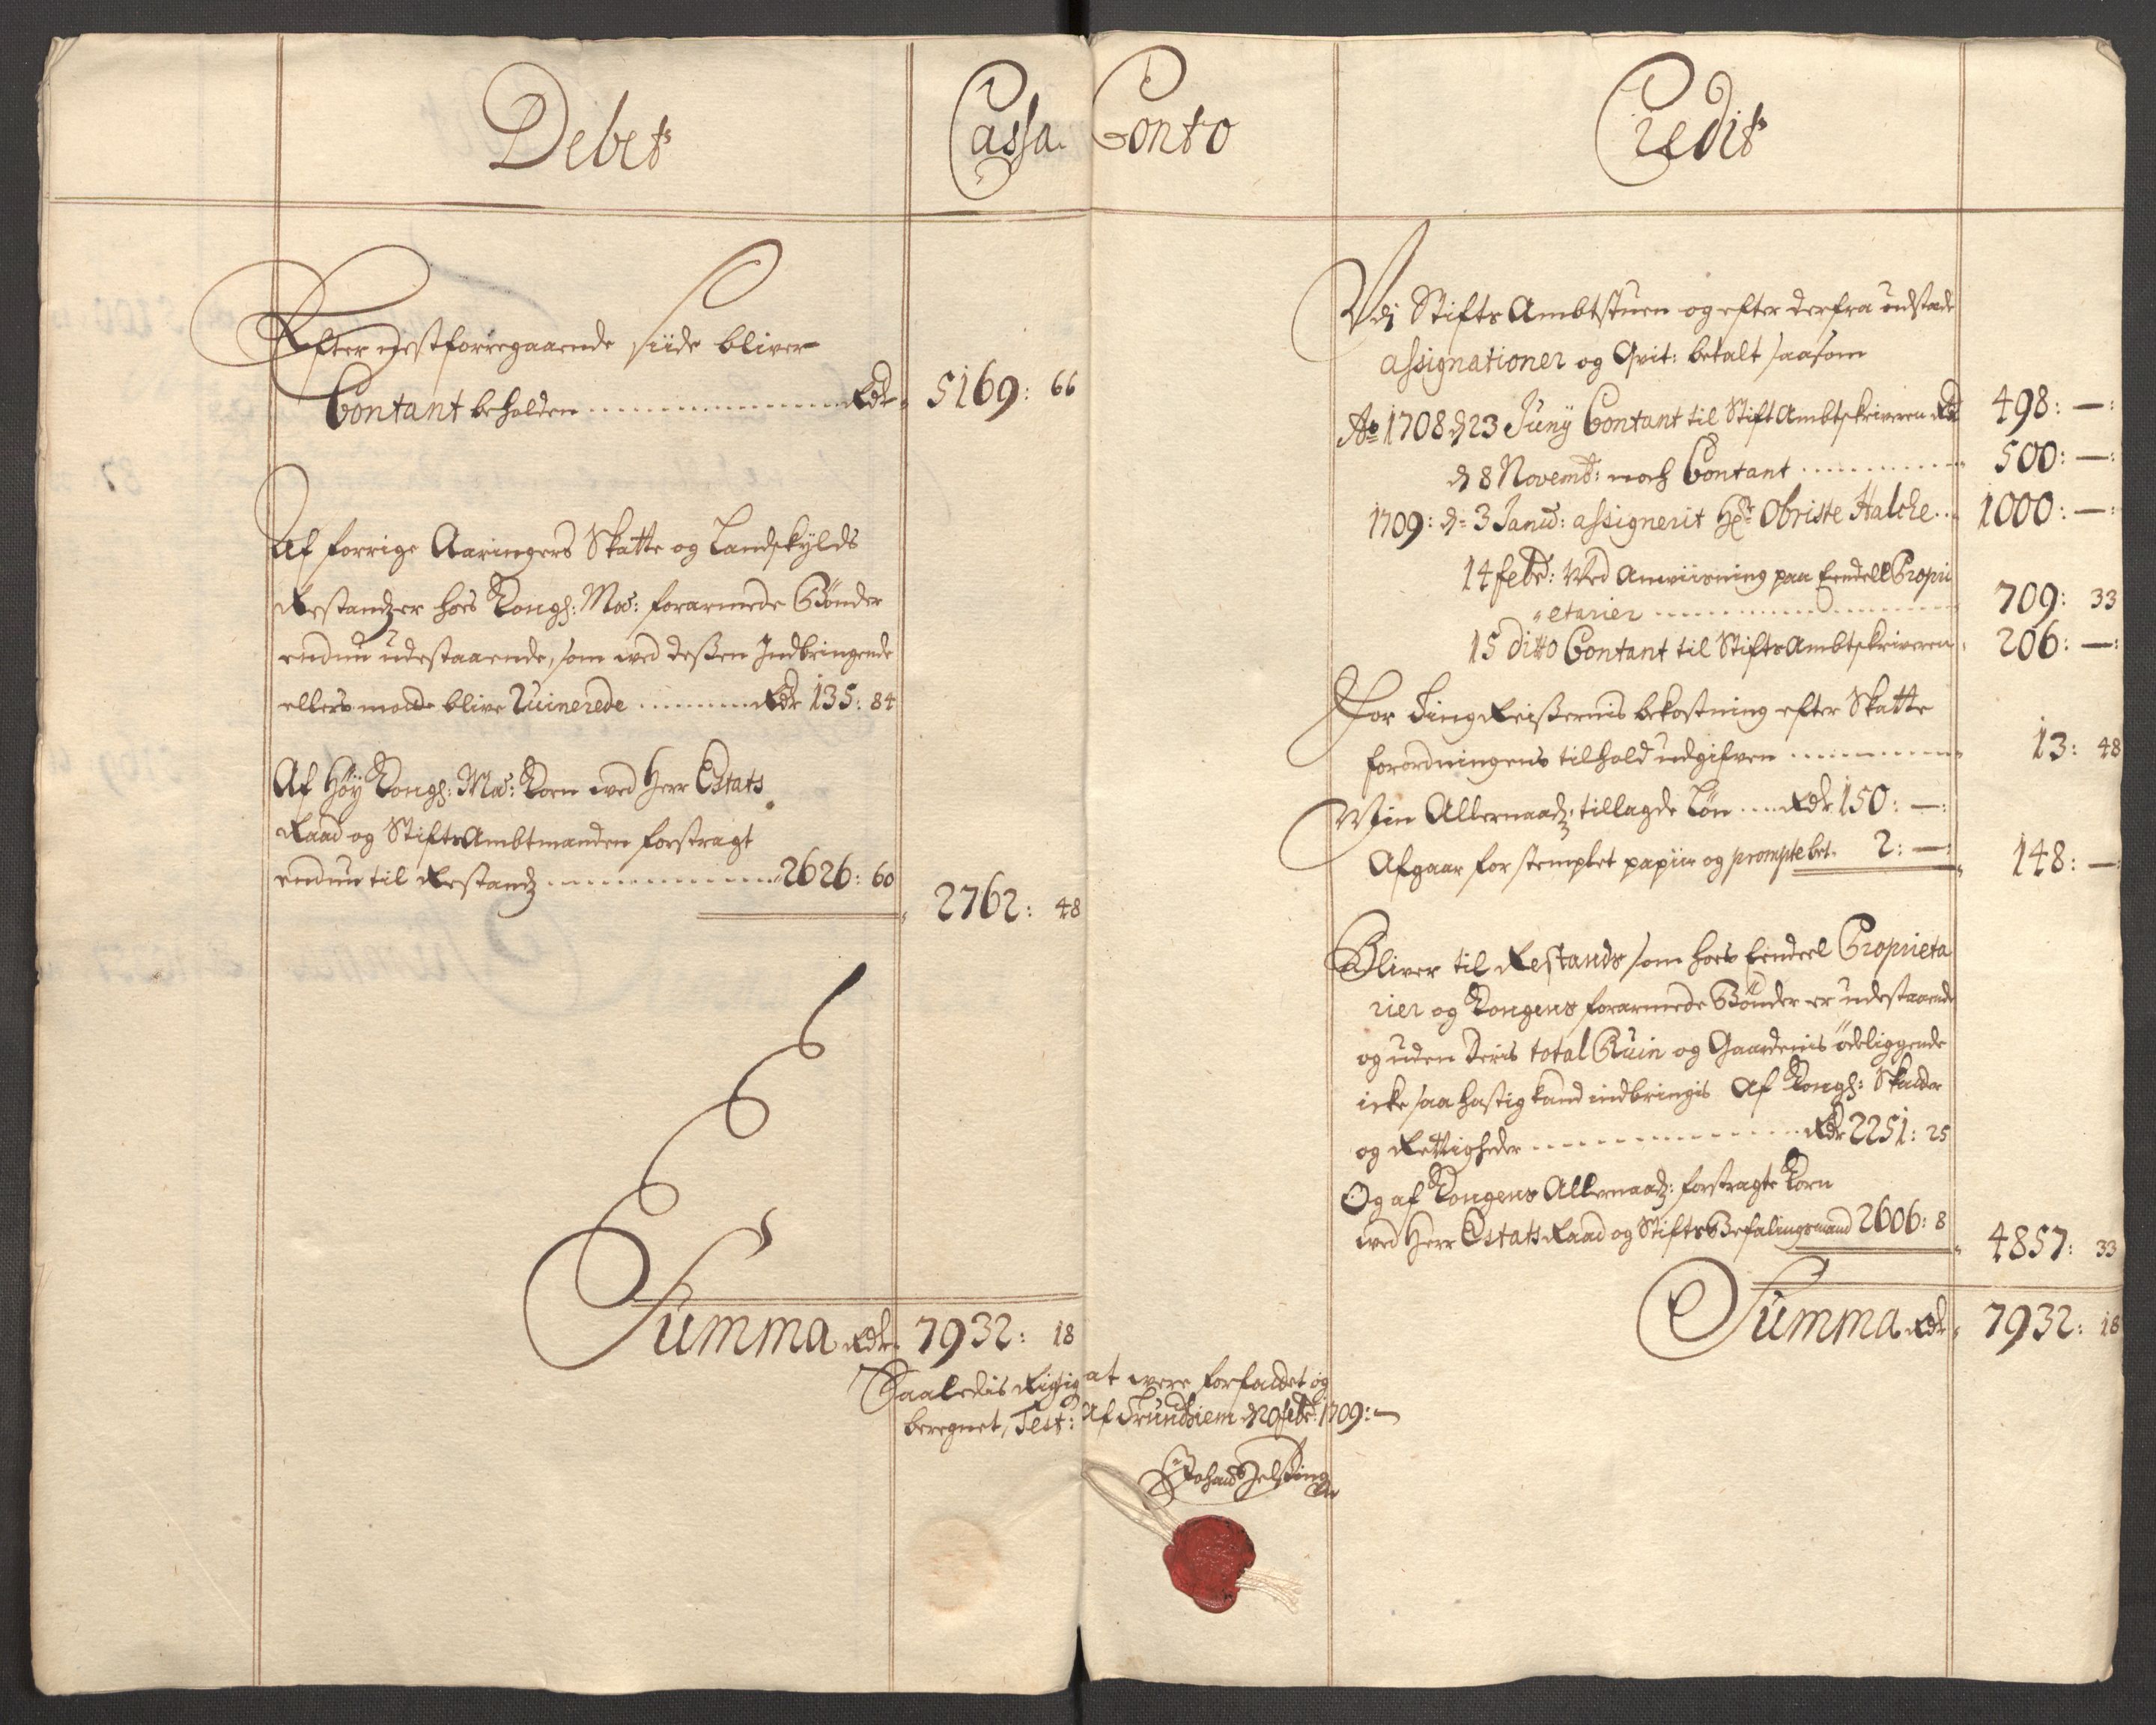 Debet
Cassa Conto
Credit
Efter nestforregaaende Siide bliver
Contant beholden Rdr 5169: 66
Af forrige Aaringers Skatte og Landskylds
Restandzer hoes Kongl: May: forarmede Bønder
endnu udestaaende, som ved deßen Indbringende
ellers motte blive Ruinerede Rdr 135: 84
Af Høy Kongl: May: Korn ved Herr Estats
Raad og StiftsAmbtmanden forstragt
endnu til Restandz 2626: 60
2762: 48
Summa Rdr 7932: 18
Udj Stifts Ambtstuen og efter derfra udstæde
assignationer og Qvit: betalt saasom
Ao 1708 d 23 Juny Contant til StiftAmbtskriveren Rdr 498: —:
d 8 Novemb: noch Contant 500: —:
1709: d: 3 Janu: assignerit Hr Obriste Halche 1000: —:
14 febr: Ved Anviisning paa Eendell Propri
etarier 709: 33
15 ditto Contant til StiftsAmbtskriveren 206: —:
For TingReißernis bekostning efter Skatte
forordningens tilhold udgifven 13: 48
Min Allernaadz: tillagde Løn Rdr 150: —:
Afgaar for stemplet papiir og prompte bet. 2: —:
148: —:
Bliver til Restands som hoes Eendeel Proprieta
rier og Kongens forarmede Bønder er udestaaende
og uden Deris total Ruin og Gaardenis ødeliggende
icke saa hastig kand indbringis Af Kongl: Skatter
og Rettigheder Rdr 2251: 25
Og af Kongens Allernaadz: forstragte Korn
ved Herr EstatsRaad og StiftsBefalingsmand 2606: 8
4857: 33
Summa Rdr 7932: 18
Saaledis Rigtig at vere forfattet og
beregnet, Test: Af Trundhiem d 20 febr: 1709: —